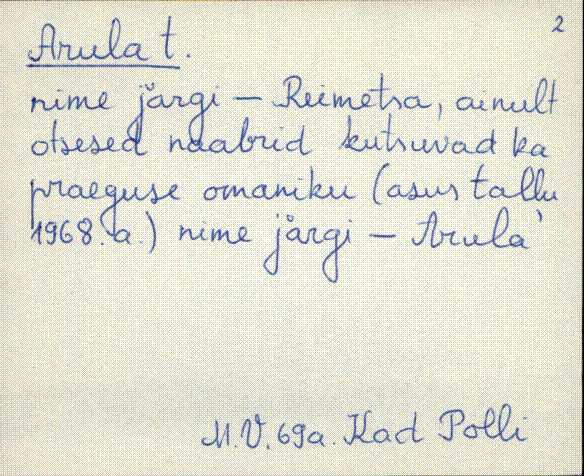 2
Arula t.
nime järgi – Reimetsa, ainult
otsesed naabrid kutsuvad ka
praeguse omaniku (asus tallu
1968. a.) nime järgi – Arula'
M.V. 69a. Kad Polli